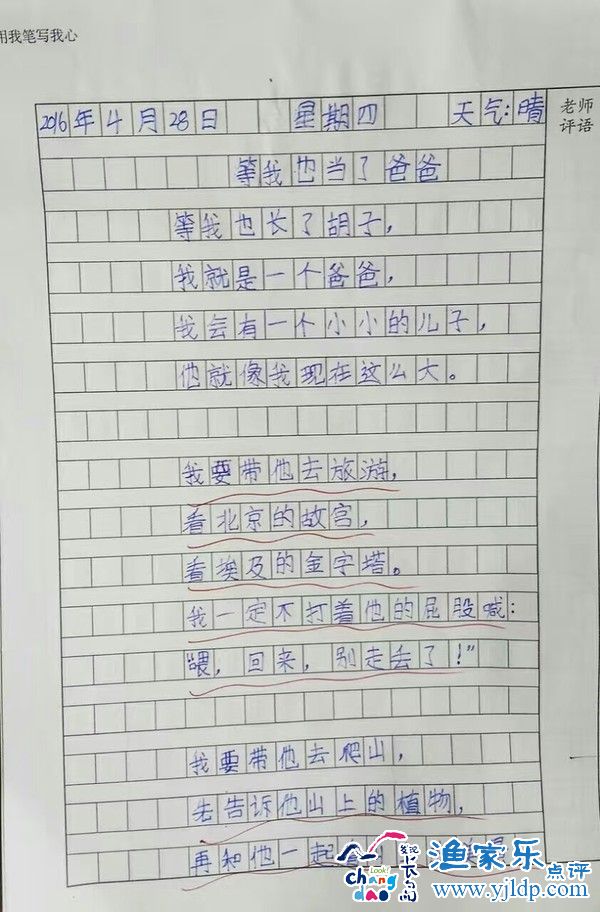 用我笔写我心
2016年4月28日 星期四 天气:晴
老师
评语
等我也当了爸爸
等我也长了胡子,
我就是一个爸爸,
我会有一个小小的儿子,
他就像我现在这么大。
我要带他去旅游,
看北京的故宫,
看埃及的金字塔。
我一定不打着他的屁股喊:
“喂,回来,别走丢了!”
我要带他去爬山,
先告诉他山上的植物,
再和他一起
Look!
chang
dao
发现
长岛
渔家乐点评
www.yjldp.com